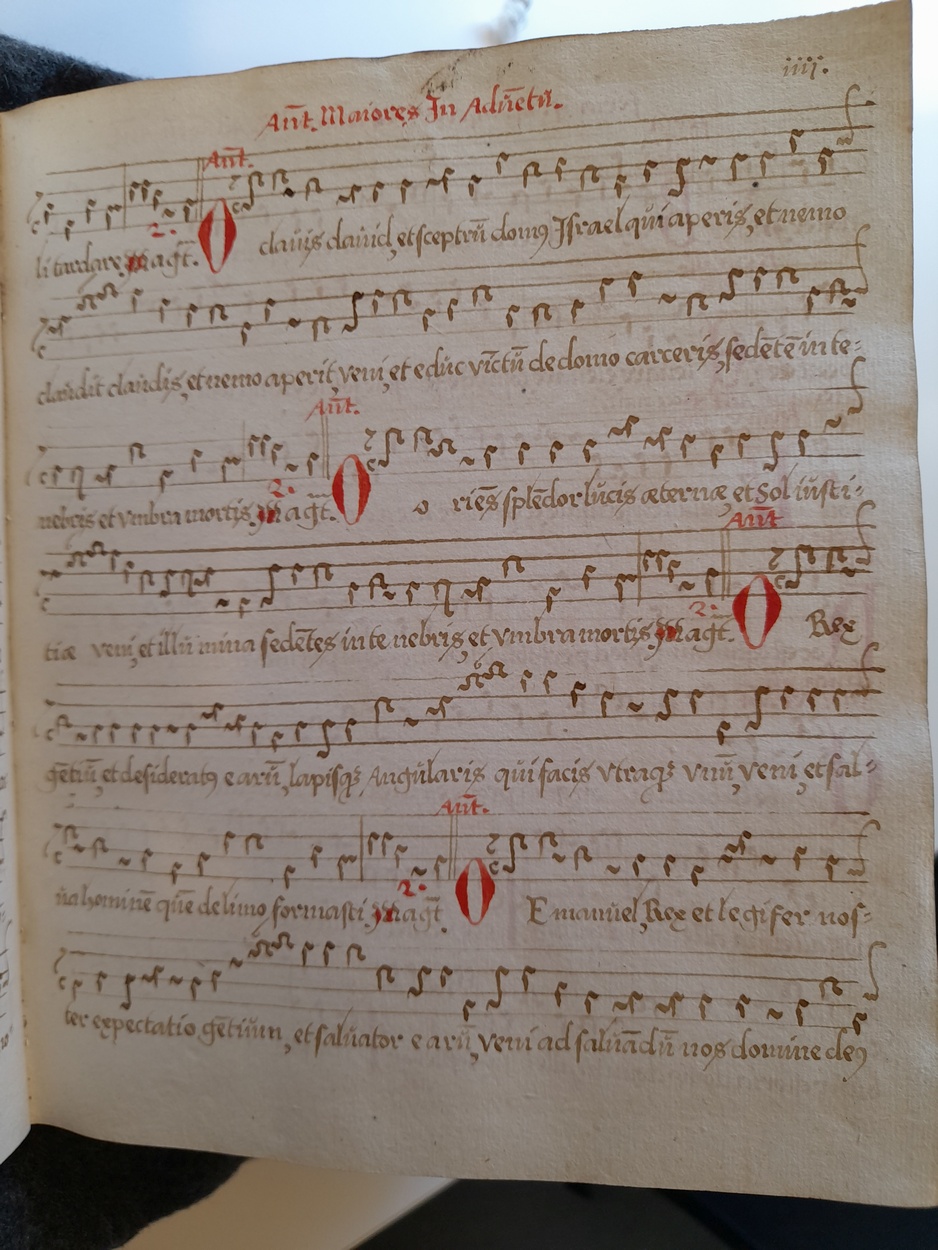 iiij.
Añt. Maiores In Adūetū.
Añt.
2.
li tardare. Magt̄. O clauis dauid, et sceptrū domꝯ Israel qui aperis, et nemo
claudit claudis, et nemo aperit, veni, et educ victū de domo carceris, sedētē in te-
Añt.
2.
nebris et vmbra mortis. Magt̄. O o riēs splēdor lucis æternæ et Sol iusti-
Añt
2.
tiæ veni, et illū mina sedētes in te nebris, et vmbra mortis. Magt̄. O Rex
gētiū, et desideratꝯ earū, lapisqꝫ Angularis qui facis vtraqꝫ vnū, veni, et sal-
Añt.
2.
ua hominē quē de limo formasti. Magt̄. O Emanuel, Rex et legifer nos-
ter expectatio gētium, et saluator earū, veni ad saluādū nos domine deꝯ